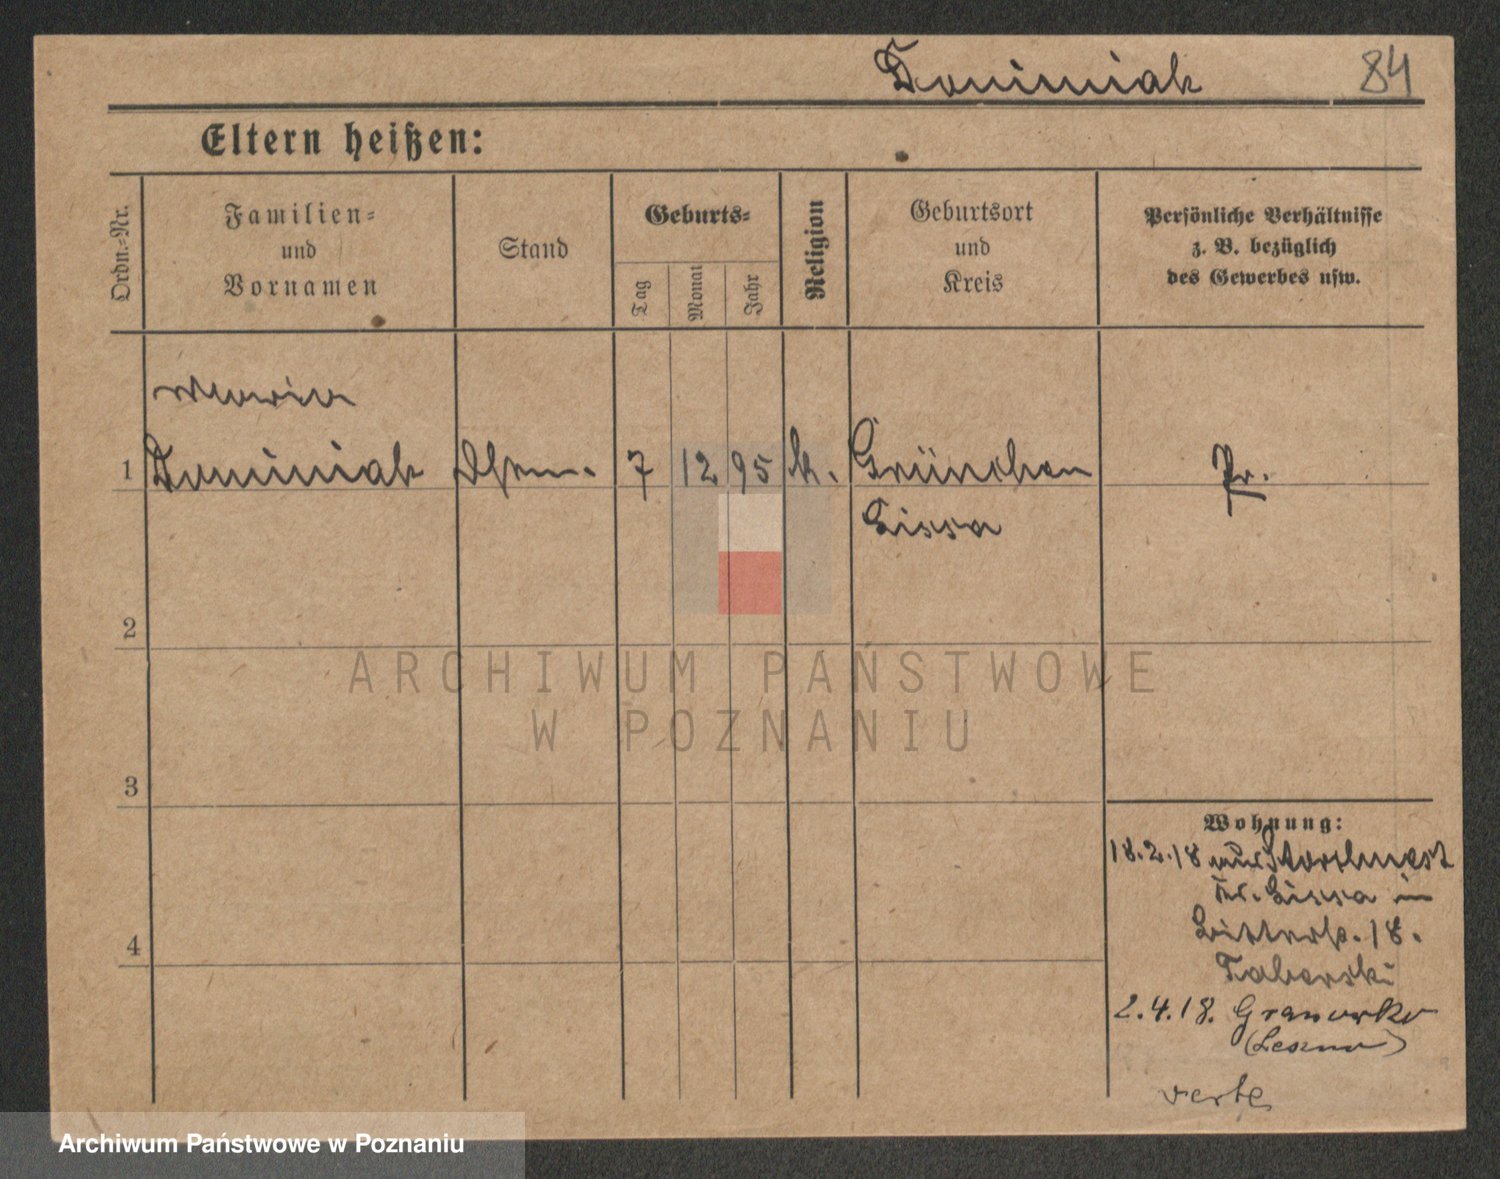 Dominiak 84
Eltern heißen:
Ordn.-Nr.
Familien-
und
Vornamen
Stand
Geburts-
Tag
Monat
Jahr
Religion
Geburtsort
und
Kreis
Persönliche Verhältnisse
z. B. bezüglich
des Gewerbes usw.
Maria
1 Dominiak 7 12 95 k. Grünchen Pr.
Lissa
2
3
4
Wohnung:
18.2.18 aus Storchnest
Kr. Lissa in
18.
Taberski
2.4.18. Granowko
(Leszno)
verte
ARCHIWUM PAŃSTWOWE
W POZNANIU
Archiwum Państwowe w Poznaniu